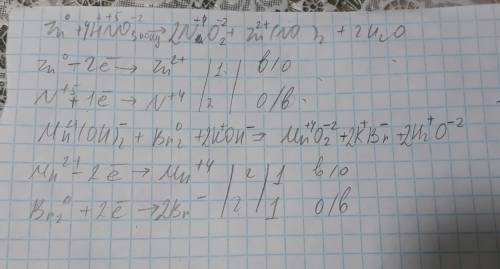 Zn⁰ + 4H⁺N⁺⁵O₃⁻² конц → 2N⁺⁴O₂⁻² + Zn²⁺(NO₃)₂ + 2H₂O
Zn⁰ - 2ē → Zn²⁺ | 1 | в/о
N⁺⁵ + 1ē → N⁺⁴ | 2 | о/в
Mn²⁺(OH)₂⁻ + Br₂⁰ + 2K⁺OH⁻ = Mn⁺⁴O₂⁻² + 2K⁺Br⁻ + 2H₂⁺O⁻²
Mn²⁺ - 2ē → Mn⁺⁴ | 2 | 1 в/о
Br₂⁰ + 2ē → 2Br⁻ | 2 | 1 о/в